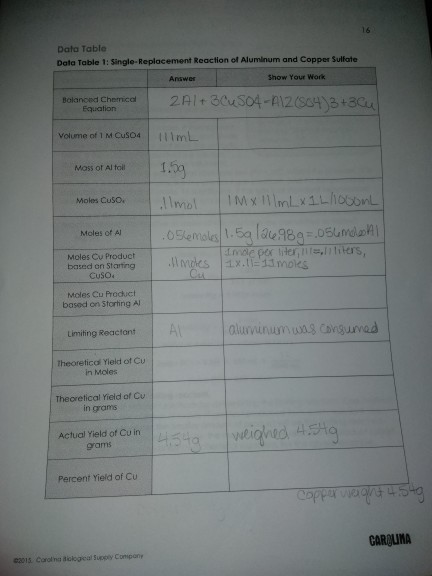 16
Data Table
Data Table 1: Single-Replacement Reaction of Aluminum and Copper Sulfate
Answer Show Your Work
Balanced Chemical Equation 2Al + 3CuSO4-Al2(SO4)3+3Cu
Volume of 1 M CuSO4 111mL
Mass of Al foil 1.5g
Moles CuSO4 .11mol 1M x 111mL x 1L/1000mL
Moles of Al .056moles 1.5g/26.98g=.056molesAl
Moles Cu Product based on Starting CuSO4 .11 moles Cu 1 mole per liter, 111=.11 liters, 1x.11=.11moles
Moles Cu Product based on Starting Al
Limiting Reactant Al aluminum was consumed
Theoretical Yield of Cu in Moles
Theoretical Yield of Cu in grams
Actual Yield of Cu in grams 4.54g weighed 4.54g
Percent Yield of Cu
Copper weight 4.54g
CAROLINA
©2015, Carolina Biological Supply Company